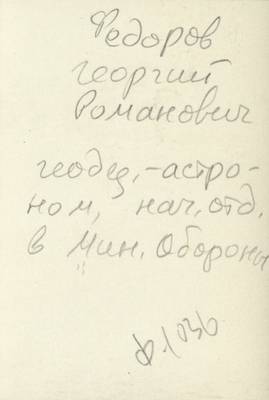 Федоров
Георгий
Романович
геодез.-астро-
ном, нач. отд.
в Мин. Обороны